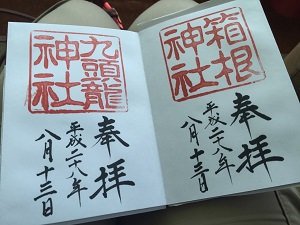 箱根
神社
奉拝
平成二十八年
八月十三日
九頭龍
神社
奉拝
平成二十八年
八月十三日